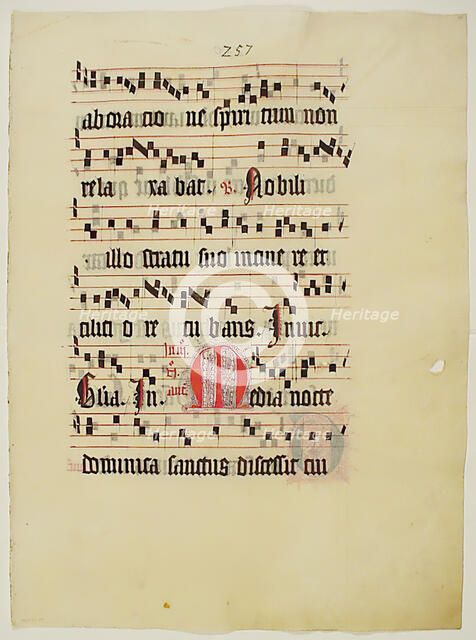 257
ab oratio ne spiritum non
rela xa bat. V. Nobili
illo stratu suo cinere et
cilici o re cu bans. Invic.
Glia. In. Media nocte
dominica sanctus discessit cui
© Heritage